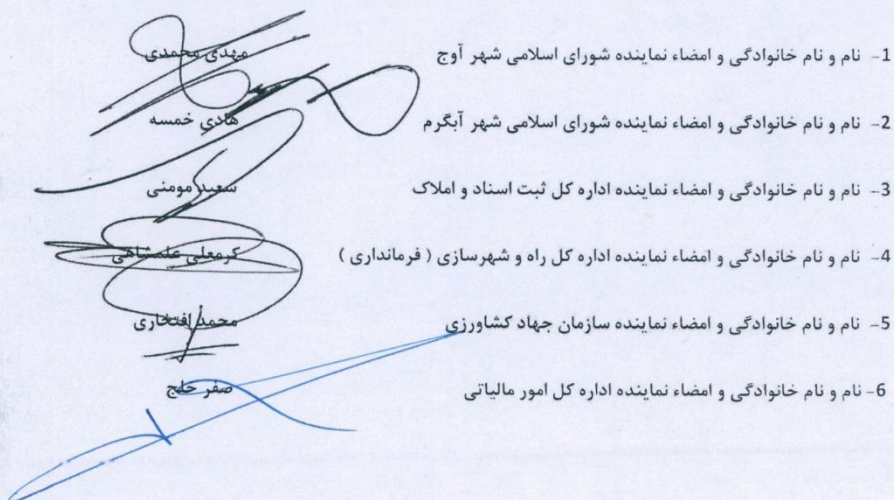 1- نام و نام خانوادگی و امضاء نماینده شورای اسلامی شهر آوج مهدی محمدی
2- نام و نام خانوادگی و امضاء نماینده شورای اسلامی شهر آبگرم هادی خمسه
3- نام و نام خانوادگی و امضاء نماینده اداره کل ثبت اسناد و املاک سعید مومنی
4- نام و نام خانوادگی و امضاء نماینده اداره کل راه و شهرسازی ( فرمانداری ) کرمعلی علمشاهی
5- نام و نام خانوادگی و امضاء نماینده سازمان جهاد کشاورزی محمد افتخاری
6- نام و نام خانوادگی و امضاء نماینده اداره کل امور مالیاتی صفر خلج